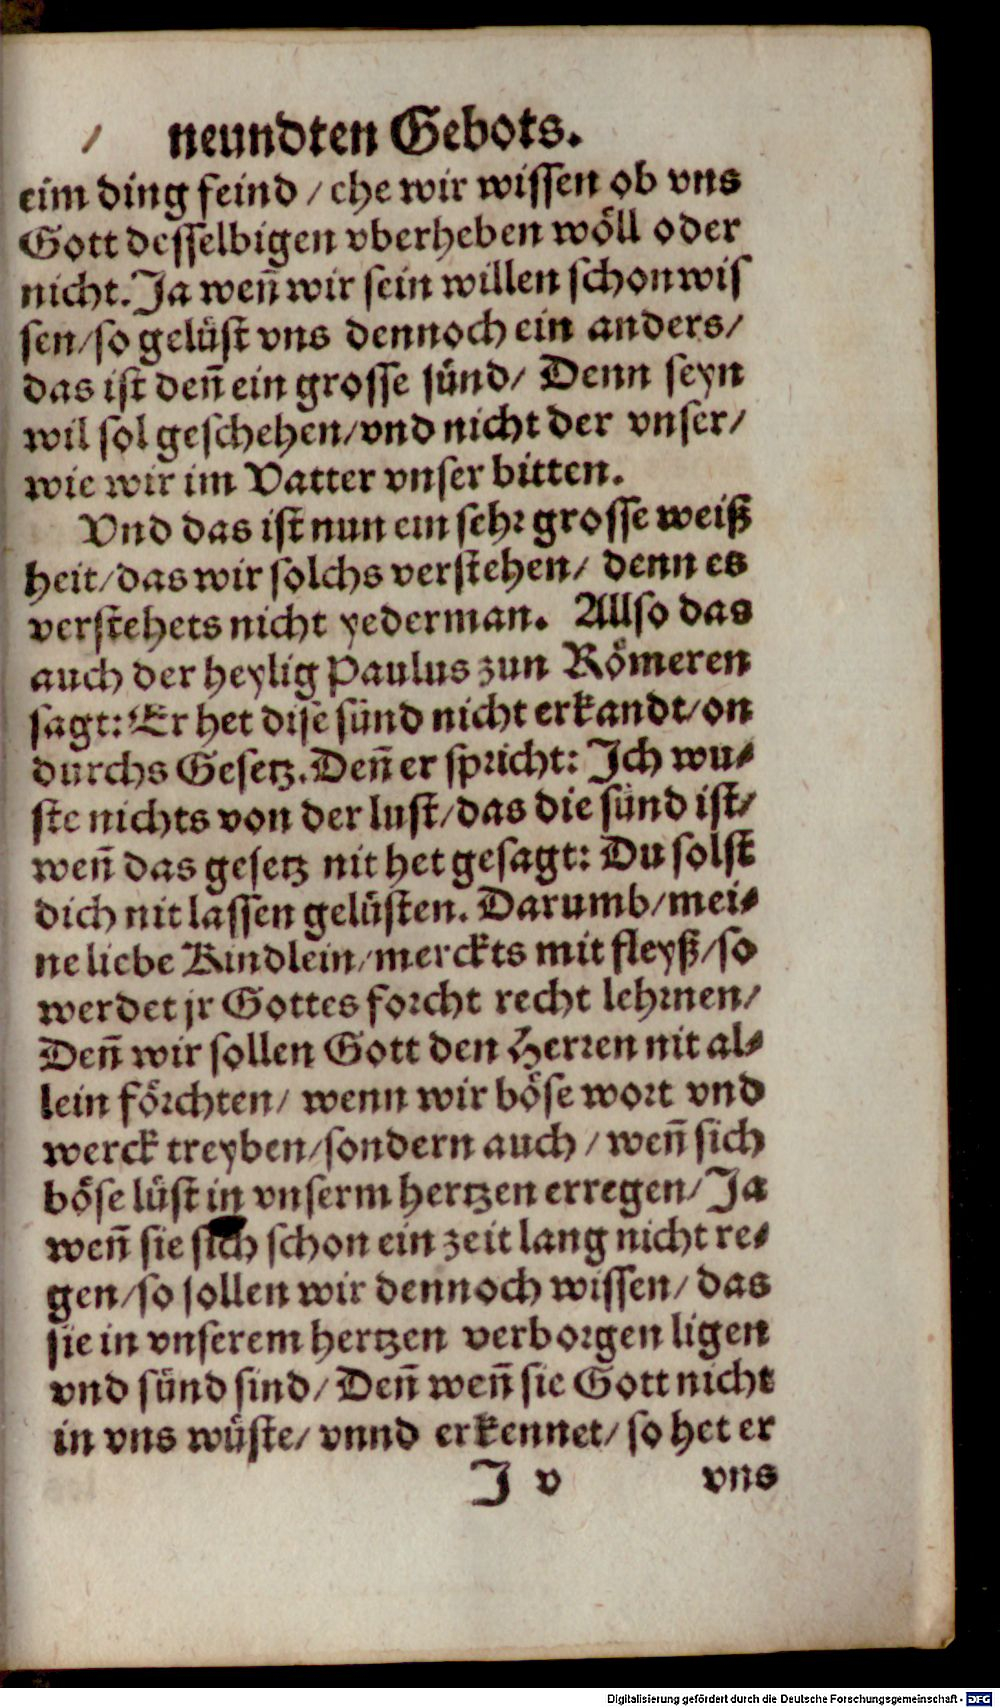 neundten Gebots.
eim ding feind / ehe wir wissen ob vns
Gott desselbigen vberheben wöll oder
nicht. Ja weñ wir sein willen schon wis
sen/so gelüst vns dennoch ein anders/
das ist deñ ein grosse sünd/ Denn seyn
wil sol geschehen/vnd nicht der vnser/
wie wir im Vatter vnser bitten.
Vnd das ist nun ein sehr grosse weiß
heit/das wir solchs verstehen/ denn es
verstehets nicht yederman. Allso das
auch der heylig Paulus zun Römeren
sagt: Er het dise sünd nicht erkandt/on
durchs Gesetz. Deñ er spricht: Ich wu-
ste nichts von der lust/das die sünd ist/
weñ das gesetz nit het gesagt: Du solst
dich nit lassen gelüsten. Darumb/mei-
ne liebe Kindlein/merckts mit fleyß/so
werdet jr Gottes forcht recht lehrnen/
Deñ wir sollen Gott den Herren nit al-
lein förchten/ wenn wir böse wort vnd
werck treyben/sondern auch / weñ sich
böse lüst in vnserm hertzen erregen/Ja
weñ sie sich schon ein zeit lang nicht re-
gen/so sollen wir dennoch wissen/ das
sie in vnserem hertzen verborgen ligen
vnd sünd sind/Deñ weñ sie Gott nicht
in vns wüste/ vnnd erkennet/ so het er
J v vns
Digitalisierung gefördert durch die Deutsche Forschungsgemeinschaft - DFG